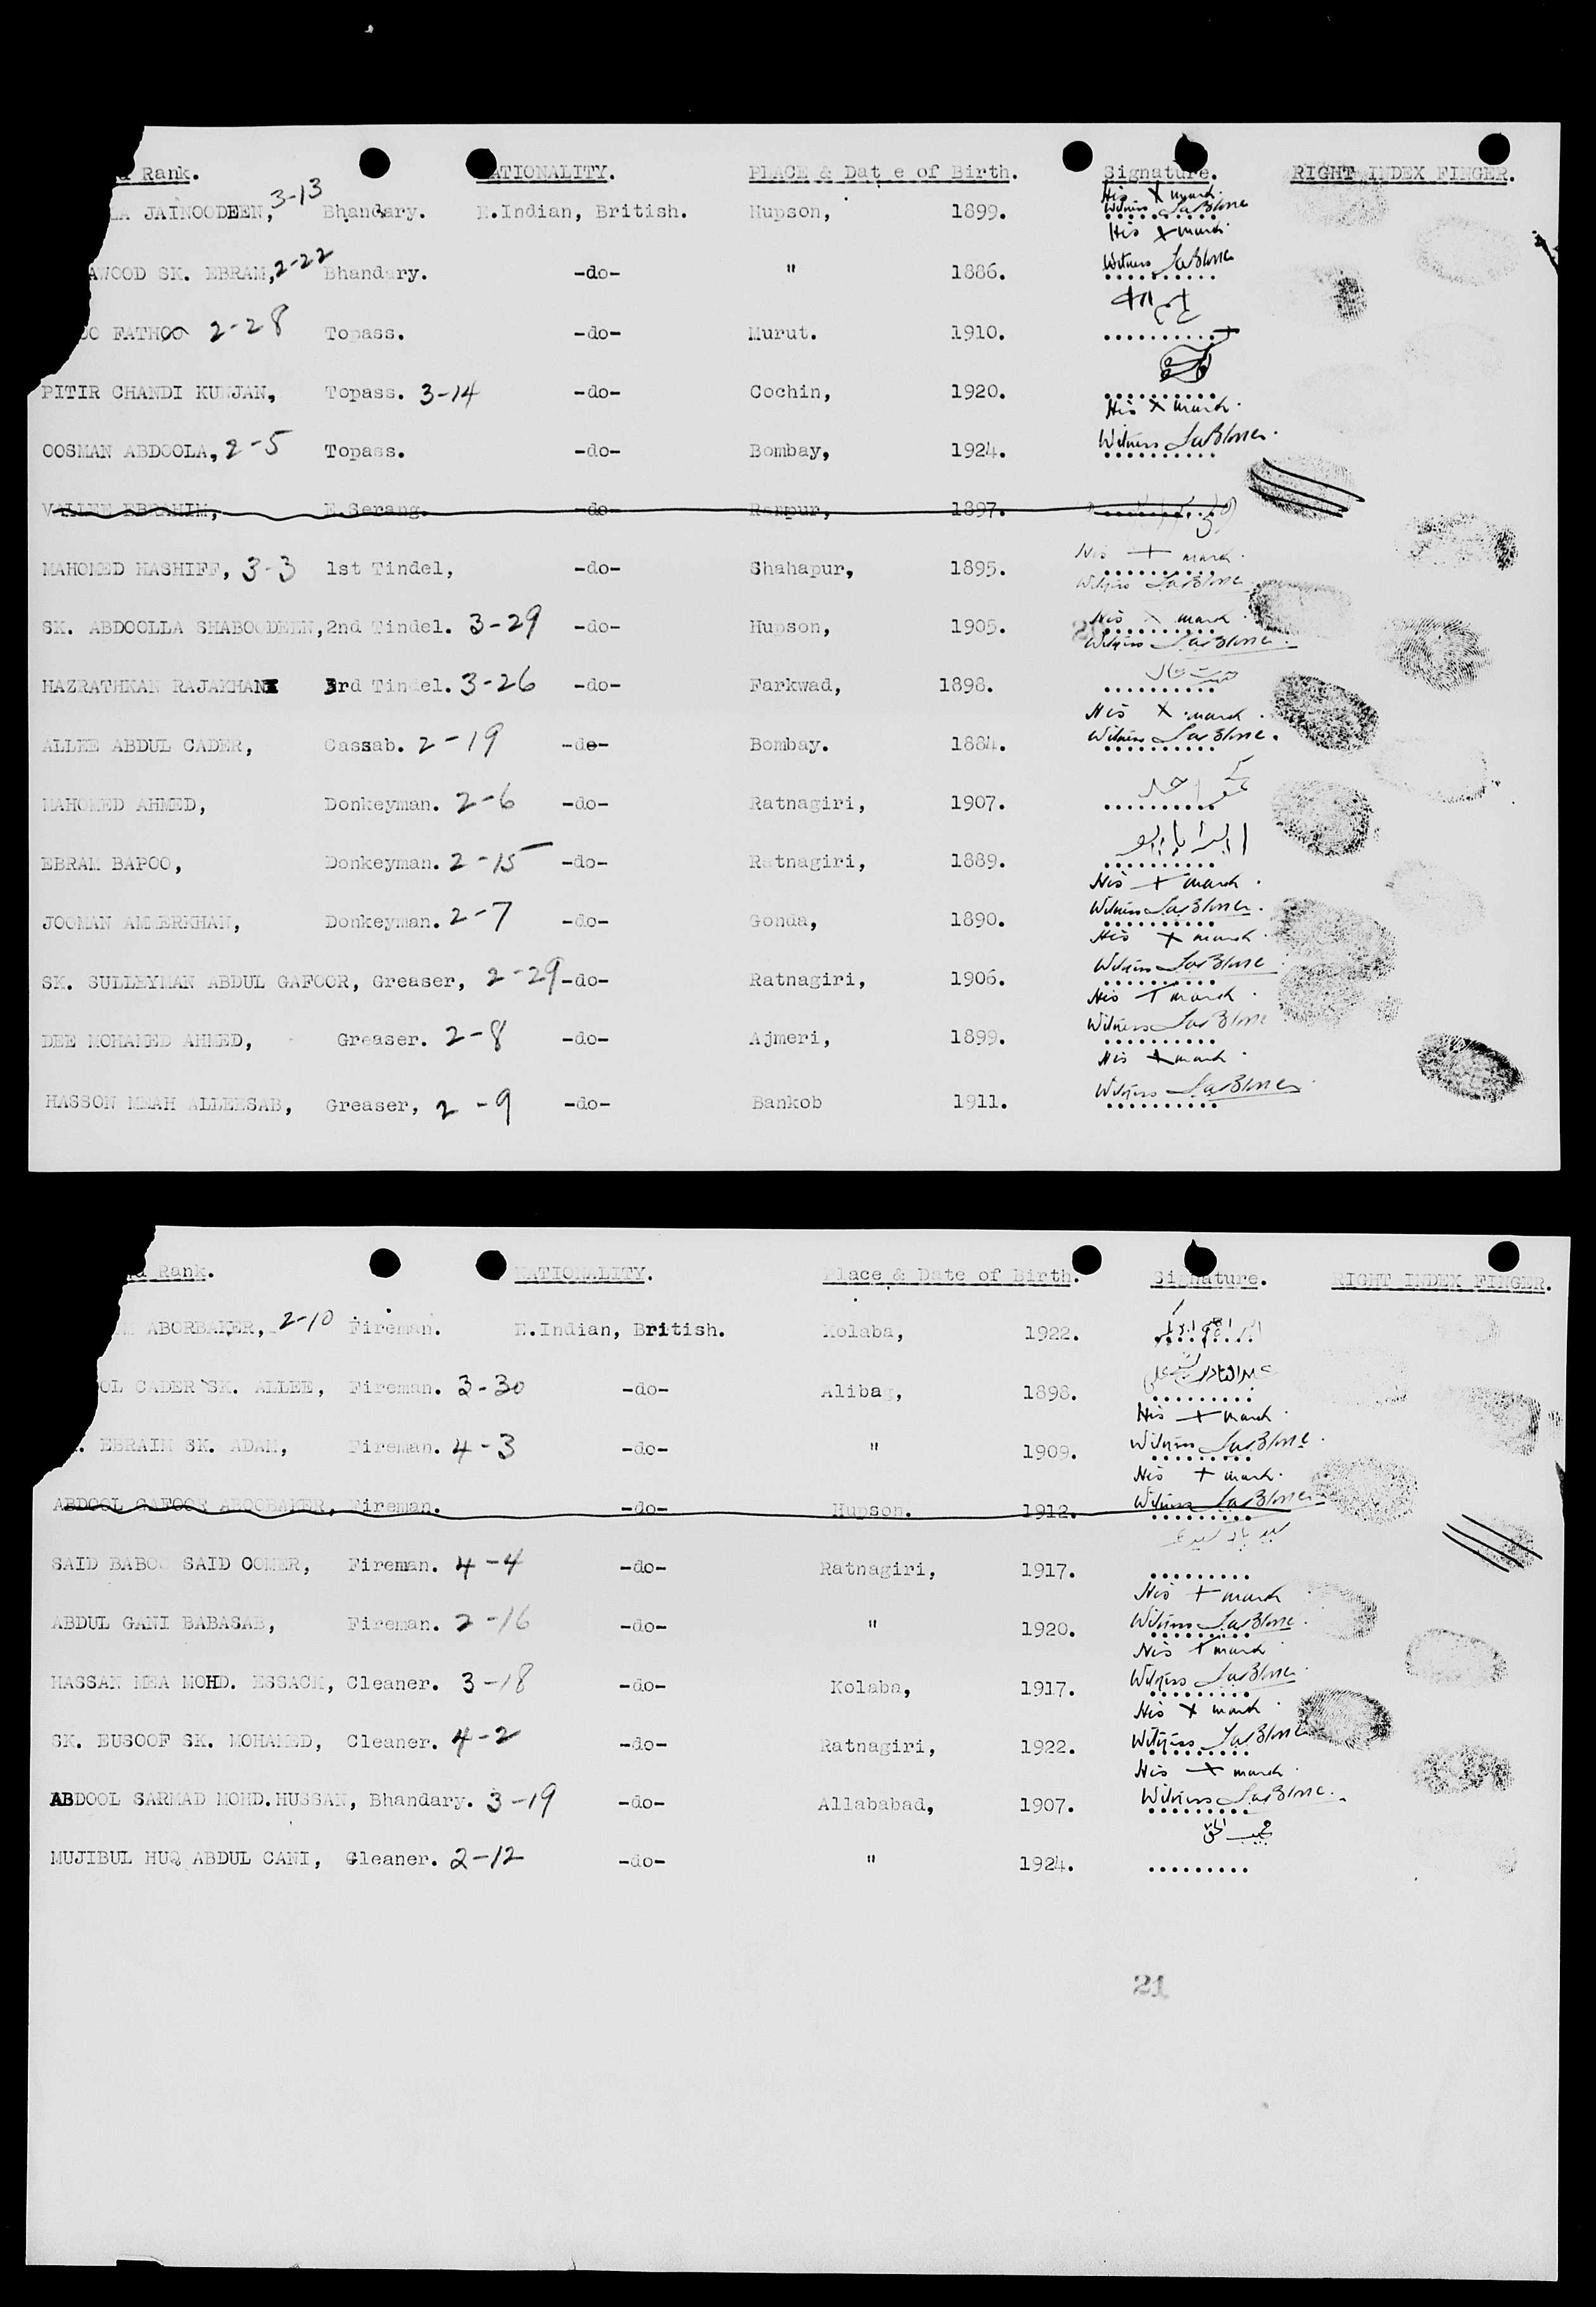 Rank. NATIONALITY. PLACE & Dat e of Birth. Signature. RIGHT INDEX FINGER.
LA JAINOODEEN, 3-13 Bhandary. E.Indian, British. Hupson, 1899. His X mark. Witness
AWOOD SK. EBRAM, 2-22 Bhandary. -do- " 1886. His X mark. Witness
OO FATHOO 2-28 Topass. -do- Murut. 1910.
PITIR CHANDI KUNJAN, Topass. 3-14 -do- Cochin, 1920.
OOSMAN ABDOOLA, 2-5 Topass. -do- Bombay, 1924. His X mark. Witness
VALLEE EBRAHIM, E.Serang. -do- Rampur, 1897.
MAHOMED HASHIFF, 3-3 1st Tindel, -do- Shahapur, 1895. His + mark. Witness
SK. ABDOOLLA SHABOODEEN, 2nd Tindel. 3-29 -do- Hupson, 1905. His X mark Witness
HAZRATHKAN RAJAKHAN 3rd Tindel. 3-26 -do- Farkwad, 1898.
ALLEE ABDUL CADER, Cassab. 2-19 -do- Bombay. 1884. His X mark. Witness
MAHOMED AHMED, Donkeyman. 2-6 -do- Ratnagiri, 1907.
EBRAM BAPOO, Donkeyman. 2-15 -do- Ratnagiri, 1889.
JOOMAN AMMERKHAN, Donkeyman. 2-7 -do- Gonda, 1890. His + mark. Witness
SK. SULLEYMAN ABDUL GAFOOR, Greaser, 2-29 -do- Ratnagiri, 1906. His + mark. Witness
DEE MOHAMED AHMED, Greaser. 2-8 -do- Ajmeri, 1899. His + mark. Witness
HASSON MEAH ALLEESAB, Greaser, 2-9 -do- Bankob 1911. His + mark. Witness
Rank. NATIONALITY. Place & Date of Birth. Signature. RIGHT INDEX FINGER.
ABORBAKER, 2-10 Fireman. E.Indian, British. Kolaba, 1922.
OL CADER SK. ALLEE, Fireman. 3-30 -do- Alibag, 1898. عبدالقادر شیخ علی
EBRAIM SK. ADAM, Fireman. 4-3 -do- " 1909. His + mark. Witness
ABDOOL GAFOOR ABOOBAKER, Fireman. -do- Hupson. 1912. His + mark. Witness
SAID BABOO SAID OOMER, Fireman. 4-4 -do- Ratnagiri, 1917.
ABDUL GANI BABASAB, Fireman. 2-16 -do- " 1920. His + mark Witness
HASSAN MEA MOHD. ESSACK, Cleaner. 3-18 -do- Kolaba, 1917. His + mark Witness
SK. EUSOOF SK. MOHAMED, Cleaner. 4-2 -do- Ratnagiri, 1922. His X mark Witness
ABDOOL SARMAD MOHD.HUSSAN, Bhandary. 3-19 -do- Allababad, 1907. His + mark. Witness
MUJIBUL HUQ ABDUL CANI, Cleaner. 2-12 -do- " 1924. مجیب الحق
21